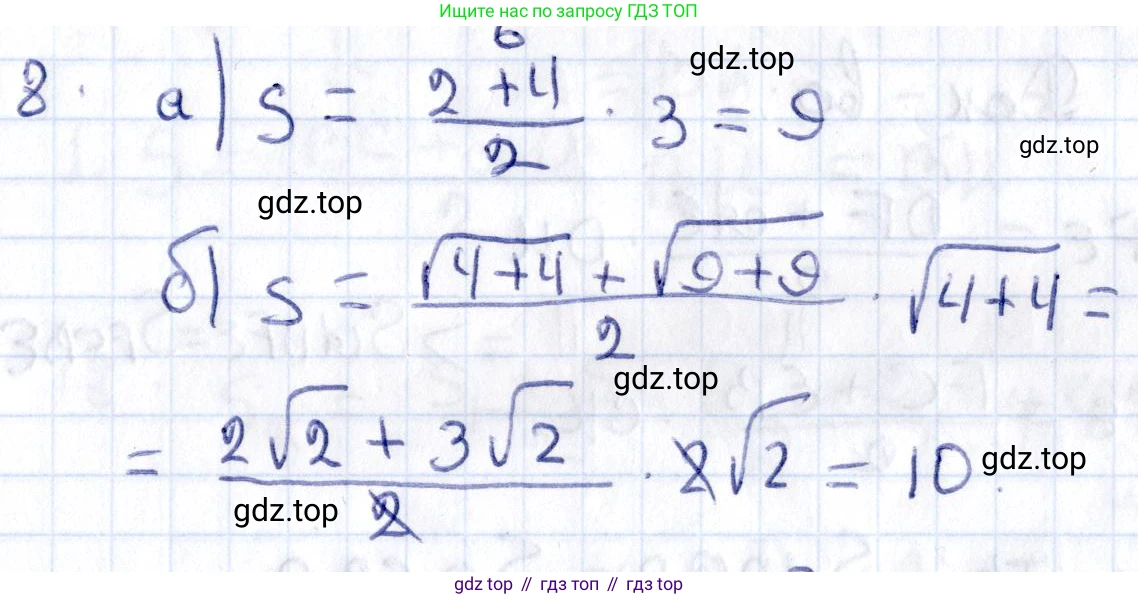 Ищите нас по запросу ГДЗ ТОП
6
gdz.top
8. а) S = (2 + 4)/2 · 3 = 9
gdz.top
gdz.top
б) S = (√(4+4) + √(9+9))/2 · √(4+4) =
gdz.top
= (2√2 + 3√2)/2 · 2√2 = 10
gdz.top
gdz.top
gdz top // гдз топ // gdz top